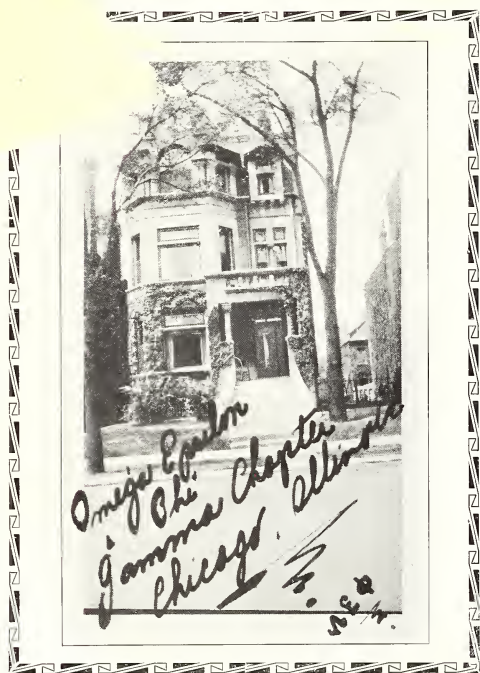 Omega Epsilon
Phi.
Gamma Chapter
Chicago, Illinois